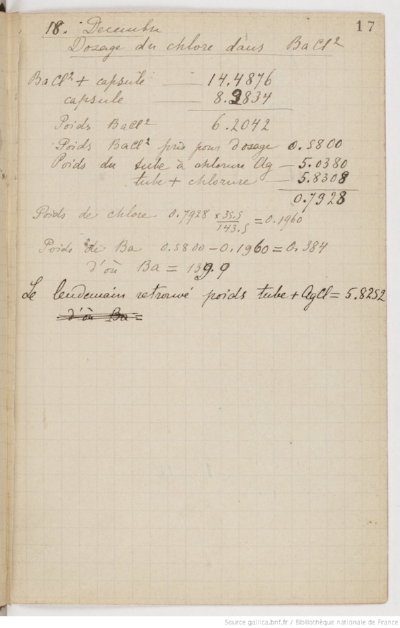 18. Decembre
17
Dosage du chlore dans BaCl²
BaCl² + capsule — 14.4876
capsule — 8.2834
Poids BaCl² 6.2042
Poids BaCl² pris pour dosage 0.5800
Poids du tube à chlorure Ag — 5.0380
tube + chlorure — 5.8308
0.7928
Poids de chlore 0.7928 × 35.5 / 143.5 = 0.1960
Poids de Ba 0.5800 – 0.1960 = 0.384
d'où Ba = 139.9
Le lendemain retrouvé poids tube + AgCl = 5.8252
d'où Ba =
Source gallica.bnf.fr / Bibliothèque nationale de France